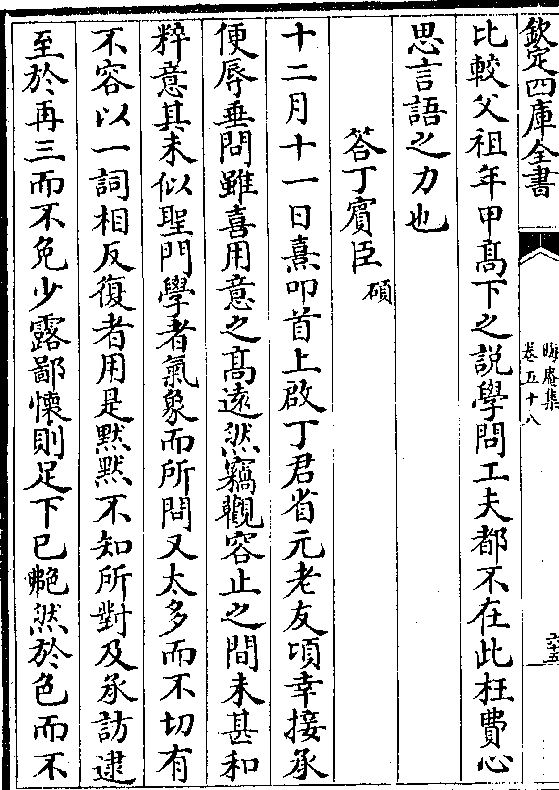 欽定四庫全書
晦庵集
卷五十八
六十五
比較父祖年甲髙下之説學問工夫都不在此枉費心
思言語之力也
答丁賔臣 碩
十二月十一日熹叩首上啟丁君省元老友頃幸接承
便辱垂問雖喜用意之髙逺然竊觀容止之間未甚和
粹意其未似聖門學者氣象而所問又太多而不切有
不容以一詞相反復者用是黙黙不知所對及承訪逮
至於再三而不免少露鄙懐則足下已艴然於色而不